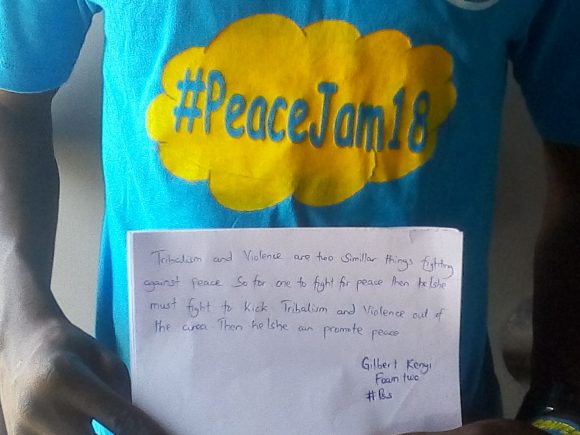 #PeaceJam18
Tribalism and Violence are two Simillar things fighting
against peace. So for one to fight for peace then he/she
must fight to kick Tribalism and Violence out of
the area. Then he/she can promote peace
Gilbert Kenyi
Foam two